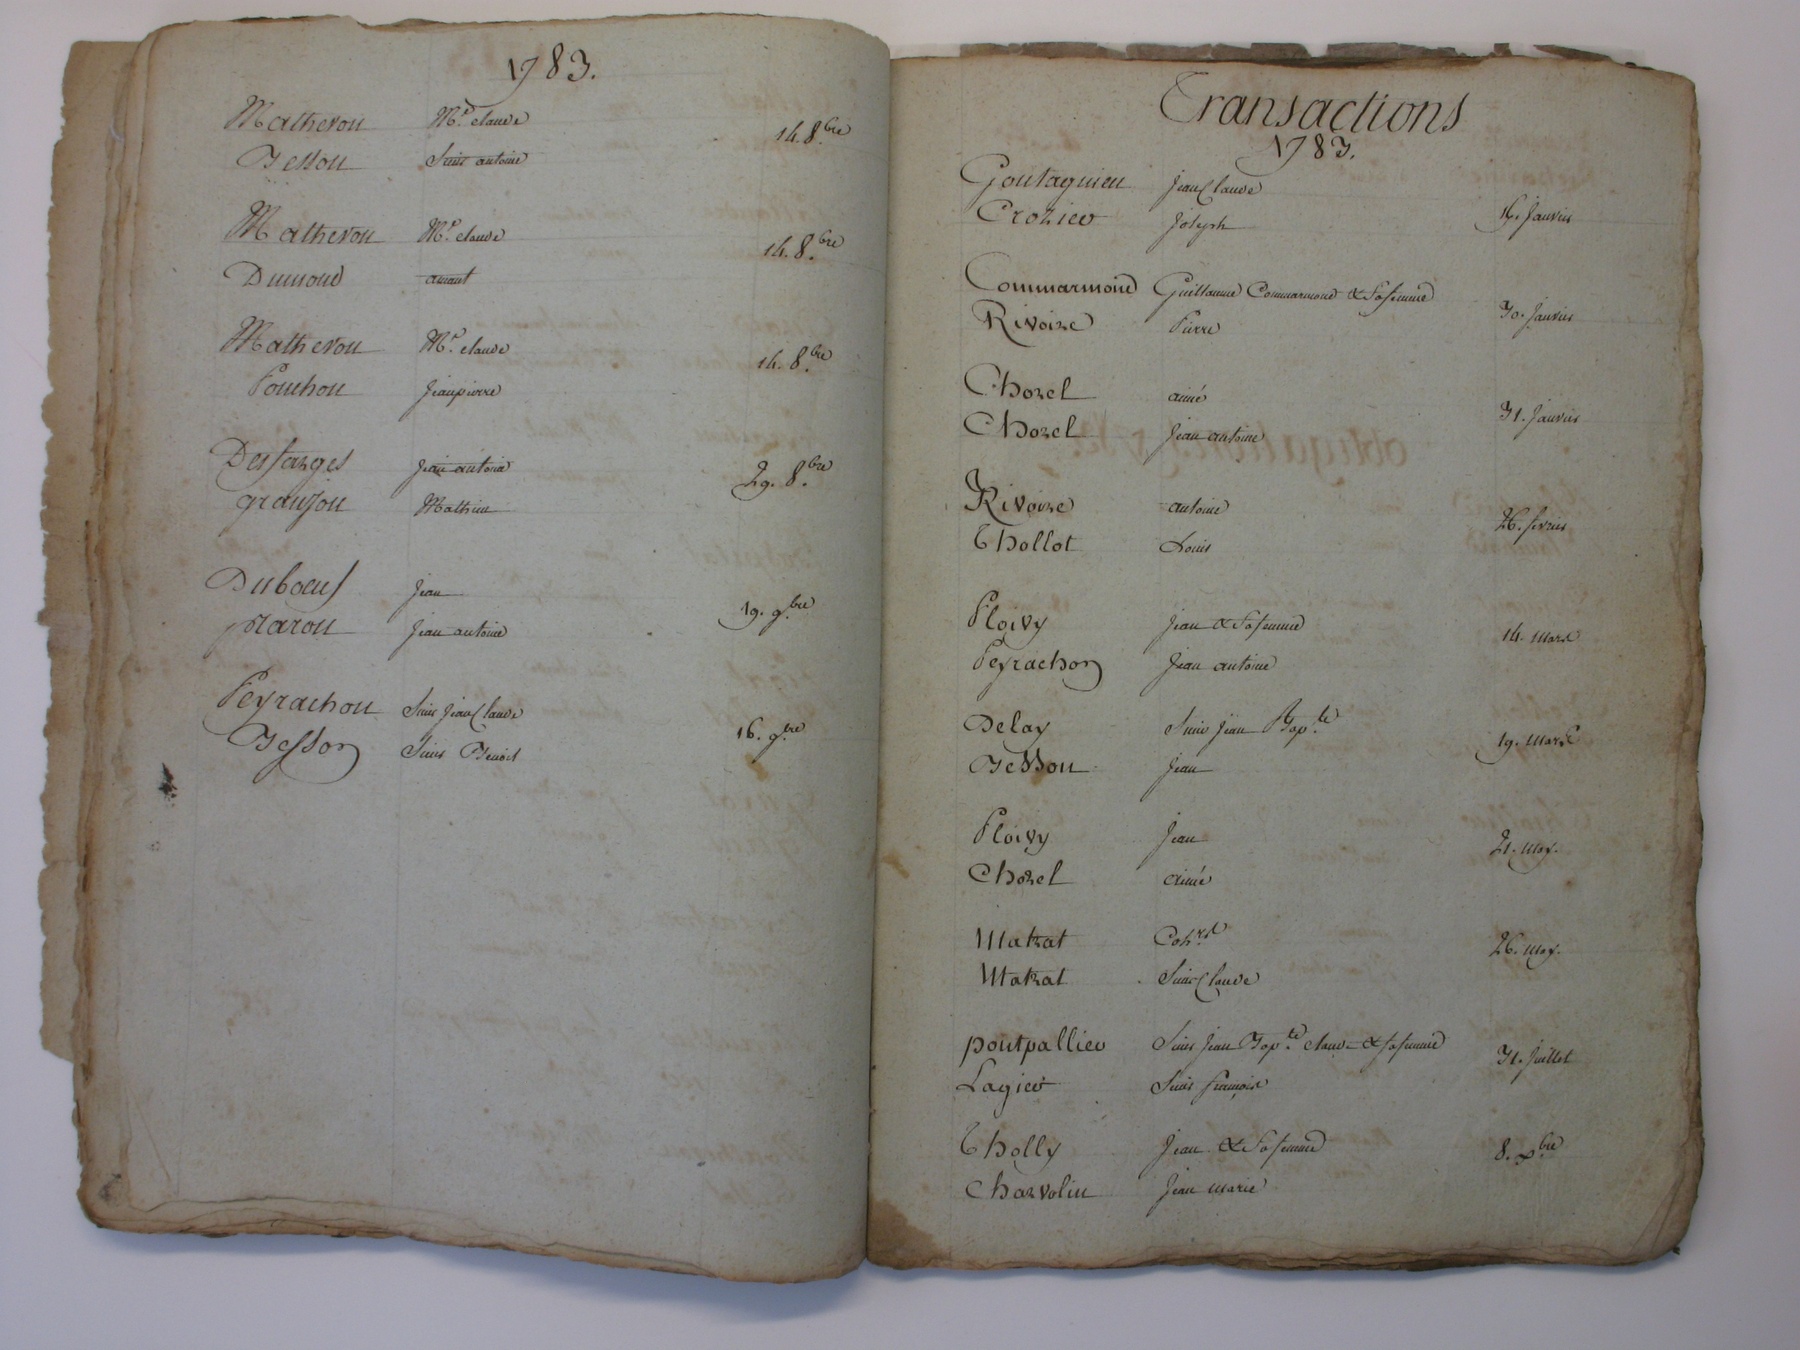 1783.
Matheron Mr. claude
14. 8.bre
Besson Sieur antoine
Matheron Mr. claude
14. 8.bre
Dumond amant
Matheron Mr. claude
14. 8.bre
Pouchon jeanpierre
Desfarges jean antoine
29. 8.bre
granjon Mathieu
Duboeuf jean
19. 9.bre
piaron jean antoine
Peyrachon Sieur jean Claude
16. 9.bre
Besson Sieur Benoit
Transactions
1783.
Goutagnieu jean Claude
16. janvier
Crozier joseph
Commarmond Guillaume Commarmond & Sa femme
30. janvier
Rivoire Pierre
Chorel aimé
31. janvier
Chorel jean antoine
Rivoire antoine
26. fevrier
Thollot Louis
Ploivy jean & Sa femme
14. mars
Peyrachon jean antoine
Delay Sieur jean Bap.te
19. Mars
Besson jean
Ploivy jean
21. may.
Chorel aimé
Matrat Coh.rs
26. may.
Matrat Sieur Claude
pontpallier Sieur jean Bap.te claude & sa femme
31. juillet
Lagier Sieur françois
Tholly jean & Sa femme
8. x.bre
Charvolin jean marie